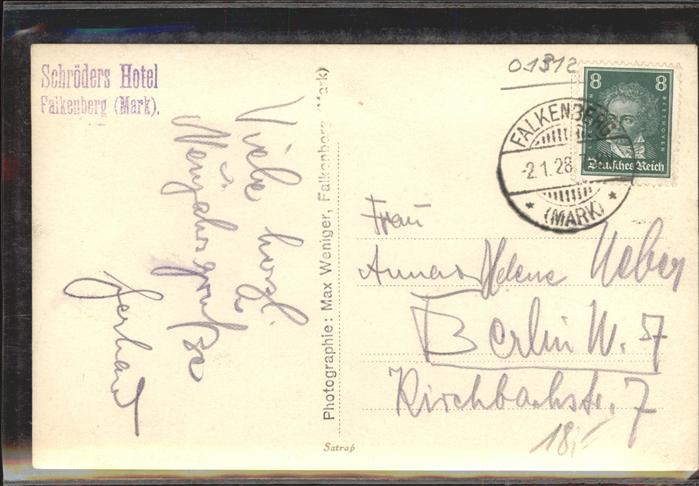 Schröders Hotel
Falkenberg (Mark).
Viele herzl.
Neujahrsgrüße
Gerhard
Photographie: Max Weniger, Falkenberg (Mark)
Satrap
01312
8 8
BEETHOVEN
Deutsches Reich
FALKENBERG
-2.1.28
* (MARK) *
Frau
Anna Helene Weber
Berlin W. 57
Kirchbachstr. 7
18,-